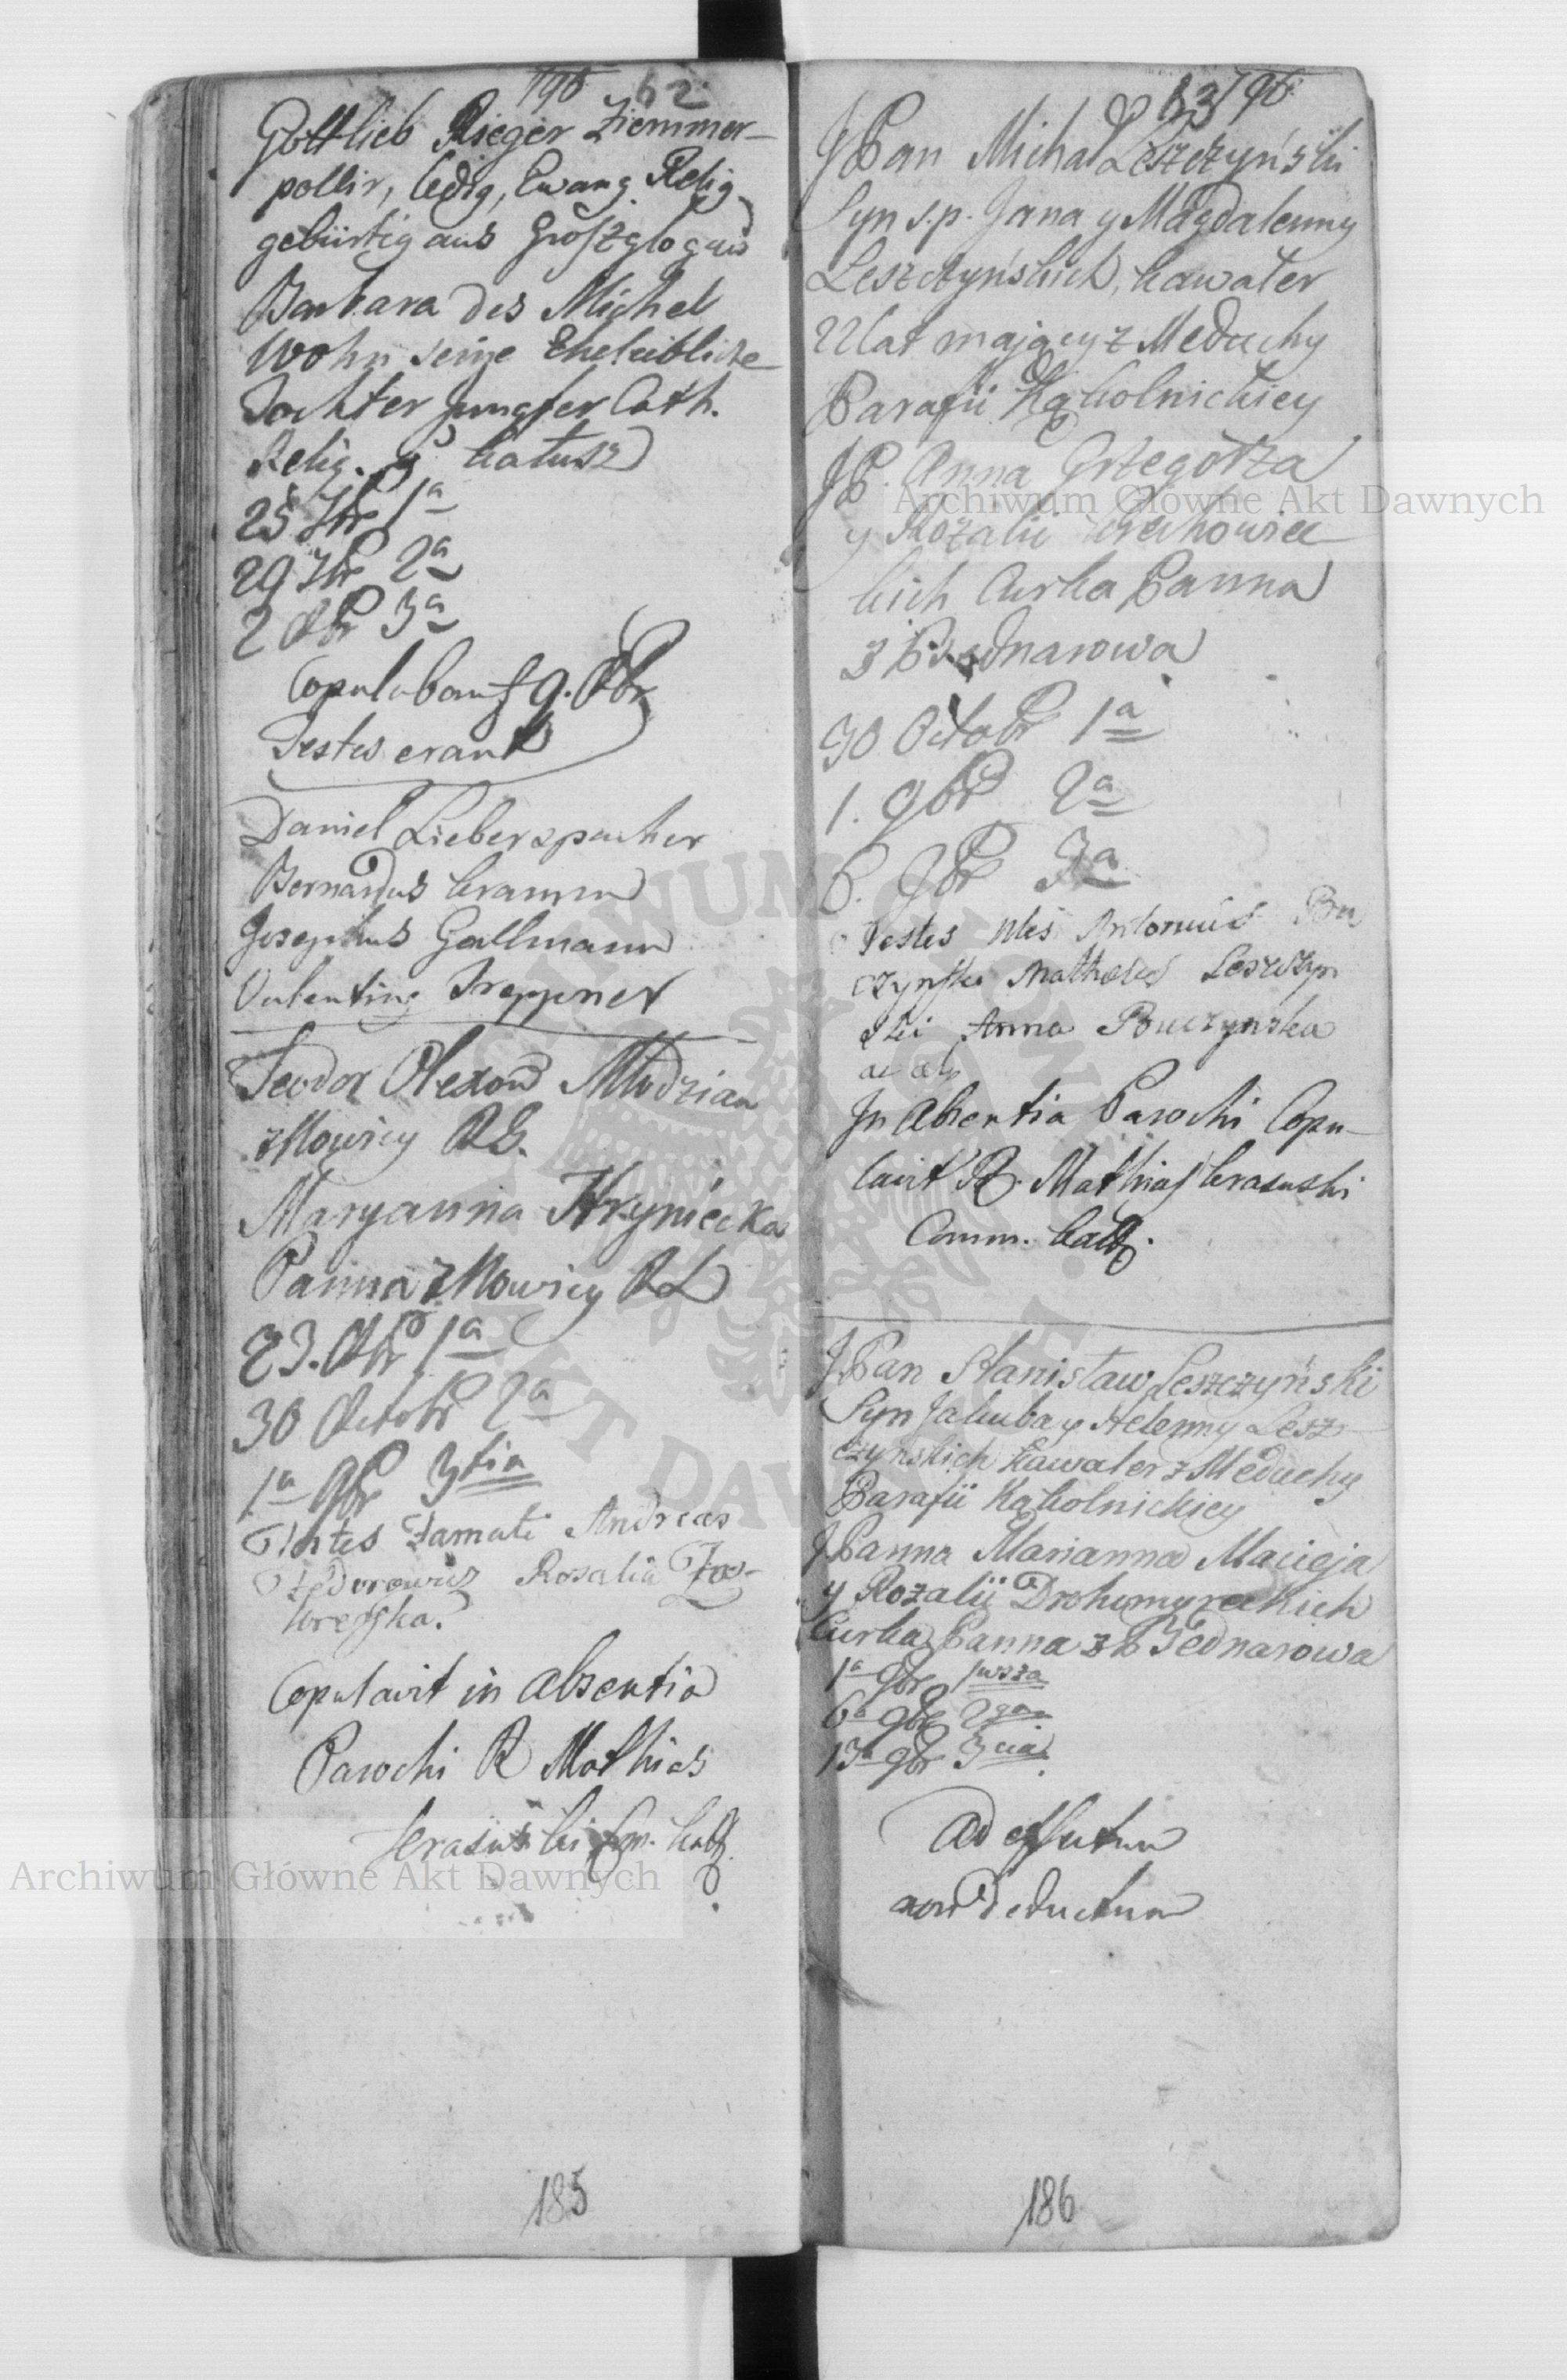 1796 62
Gottlieb Rieger Ziemmer-
pollir, ledig, Ewang. Relig.
gebürtig aus Groszglogau
Barbara des Michel
Wohn seine Eheleibliche
Tochter Jungfer Cath.
Relig. Kałusz
25 7br 1a
29 7br 2a
2 8br 3a
Copulabant 9. 8br
Testes erant
Daniel Lieberspacher
Bernardus Gramm
Josephus Gallmann
Valenting Treppner
Teodor Olexow Młodzian
z Mowicy R.G.
Maryanna Hryniecka
Panna z Mowicy RL
23. 8br 1a
30 Octobr 2a
1a 9br 3tia
Testes Zamati Andreas
Fedorowicz Rosalia
Copulavit in absentia
Parochi R Mathias
Krasuski Com. Kału.
185
63 1796
JPan Michał Leszczyński
Syn s.p. Jana y Magdalenny
Leszczyńskich, kawaler
lat maiący z Meduchy
Parafii Kąkolnickiey
JP. Anna Grzegorza
y Rozalii
kich Curka Panna
z Bednarowa
30 Octobr 1a
1. 9br 2a
6. 9br 3a
Testes Antonius Bu
czynski Mathaeus Leszczyn
ski Anna Buczynska
ac alii
In absentia Parochi Copu-
lavit R. Mathias Krasuski
Comm. Kału.
JPan Stanisław Leszczyński
Syn Jakuba y Helenny Lesz
czynskich Kawaler z Meduchy
Parafii Kąkolnickiey
JPanna Marianna Macieja
y Rozalii Drohomyreckich
Curka Panna z Bednarowa
1a 9br 1wsza
6a 9br 2ga
13a 9br 3cia
Ad effectum
non deductum
186
Archiwum Główne Akt Dawnych
Archiwum Główne Akt Dawnych
ARCHIWUM GŁÓWNE AKT DAWNYCH